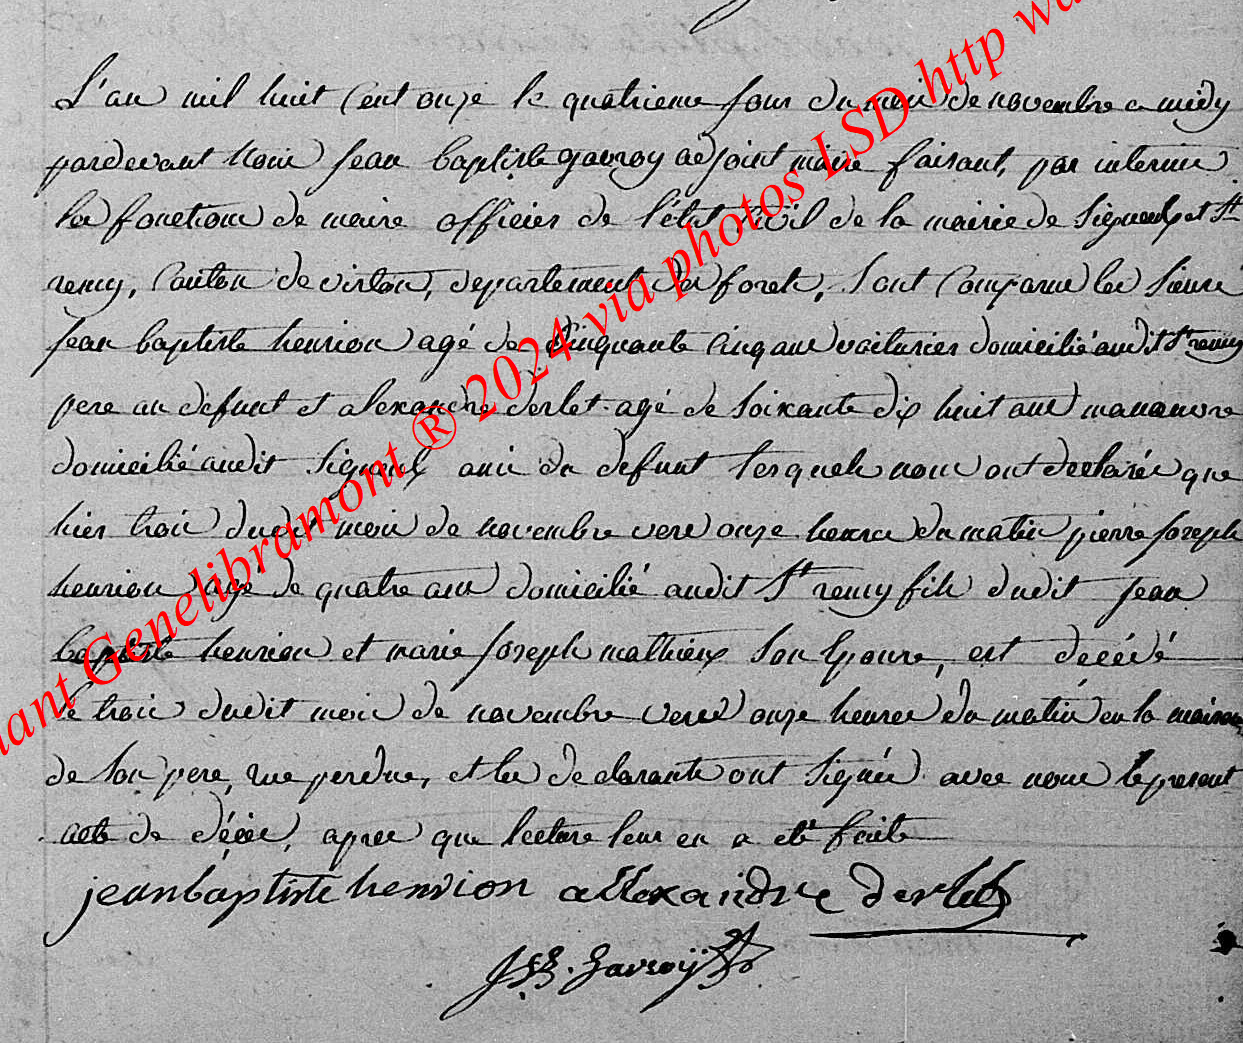 L'an mil huit Cent onze le quatrieme jour du mois de novembre a midy
pardevant Nous Jean baptiste gavroy adjoint maire faisant, par interim
les fonctions de maire officier de l'état Civil de la mairie de Signeulx et St
remy, Canton de virton, departement des forets, Sont Comparus les Sieurs
Jean baptiste henrion agé de Cinquante Cinq ans voiturier domicilié audit St remy
pere au defunt et alexandre derlet agé de soixante dix huit ans manouvre
domicilié audit Signeulx ami du defunt lesquels nous ont declarés que
hier trois dudit mois de novembre vers onze heures du matin pierre Joseph
henrion agé de quatre ans domicilié audit St remy fils dudit jean
baptiste henrion et marie Joseph mathieux Son Epouse, est décédé
le trois dudit mois de novembre vers onze heures du matin en la maison
de Son pere, rue perdue, et les declarants ont Signés avec nous le present
acte de décès, apres que lecture leur en a eté faite
jeanbaptiste henrion allexandre derlet
JBB. Gavroÿ
nant Genelibramont ® 2024 via photos LSD http wa